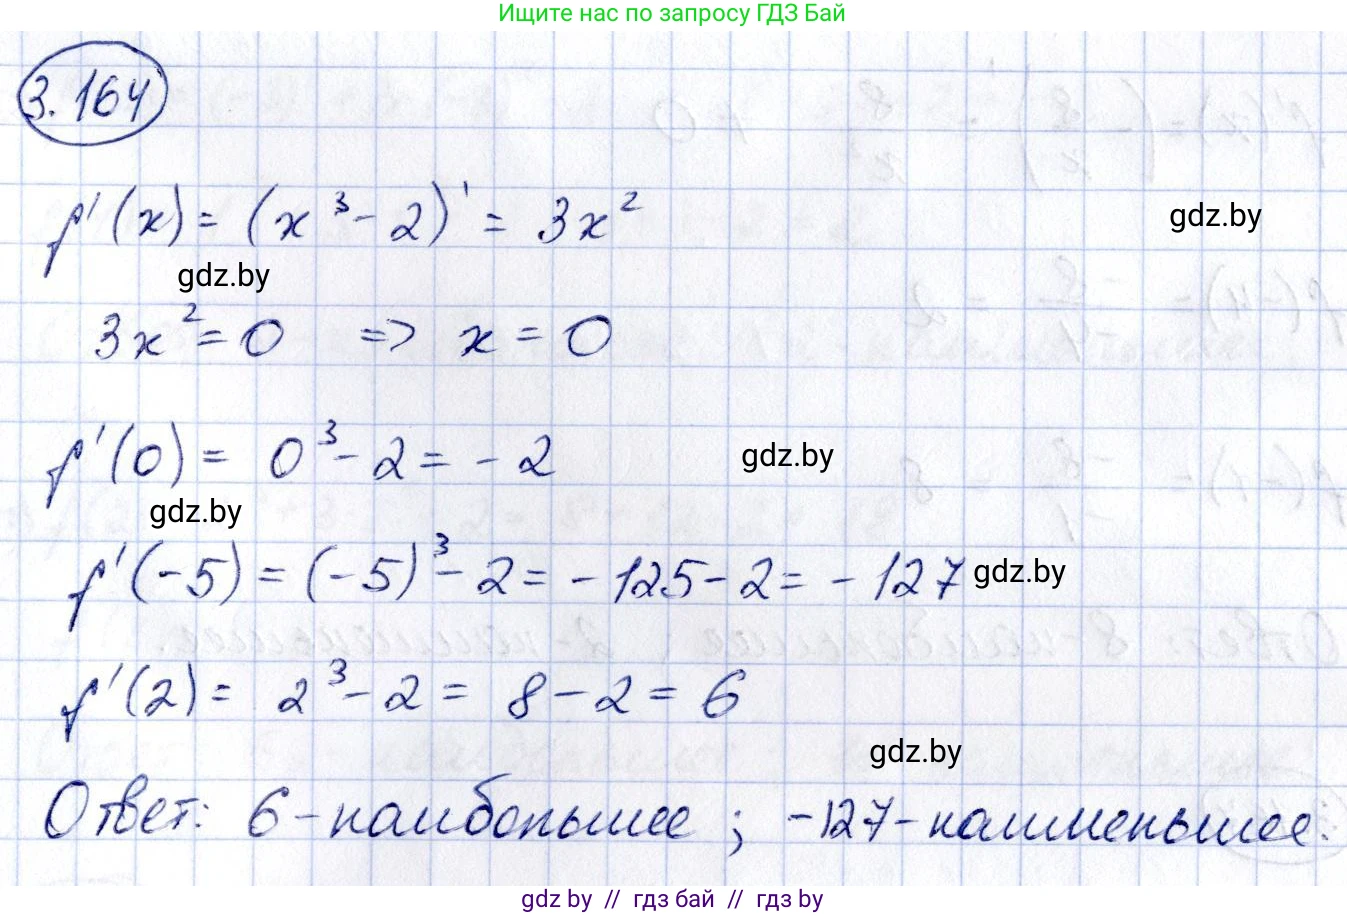 Ищите нас по запросу ГДЗ Бай
3.164
f'(x) = (x³ - 2)' = 3x²
gdz.by
gdz.by
3x² = 0 => x = 0
f'(0) = 0³ - 2 = - 2
gdz.by
gdz.by
f'(-5) = (-5)³ - 2 = - 125 - 2 = - 127
gdz.by
f'(2) = 2³ - 2 = 8 - 2 = 6
gdz.by
Ответ: 6 - наибольшее ; -127 - наименьшее.
gdz by // гдз бай // гдз by